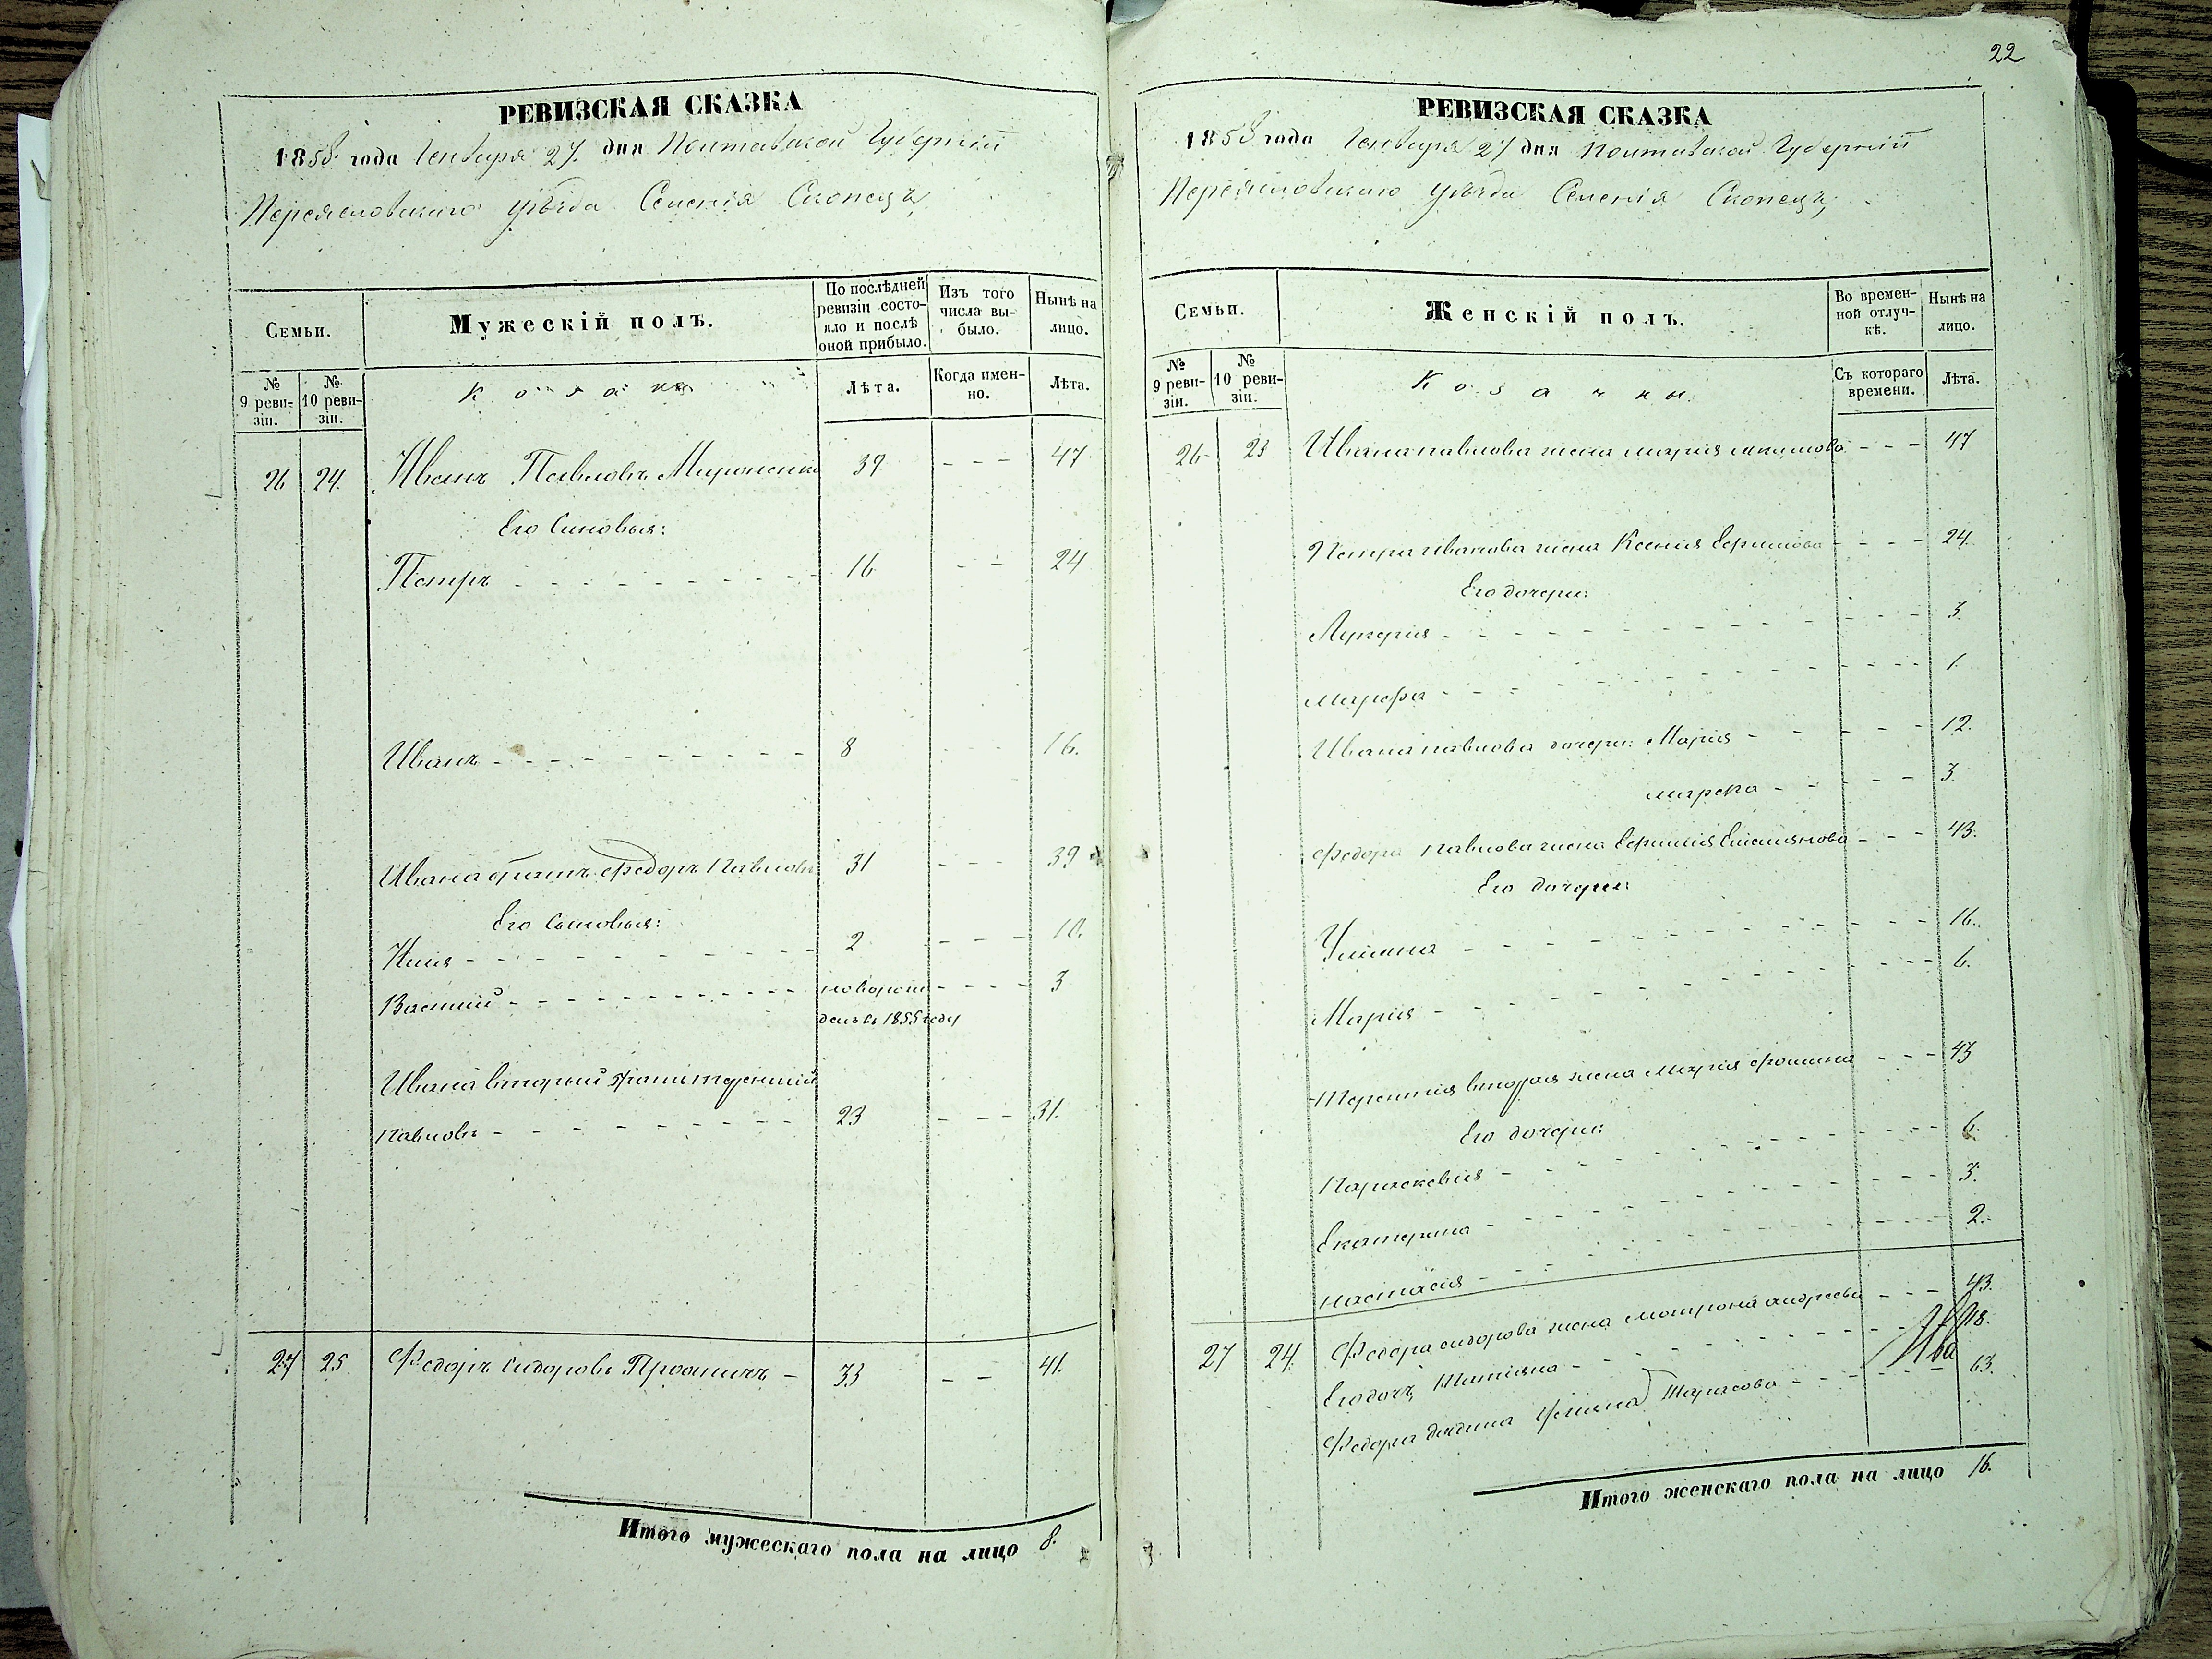 22
РЕВИЗСКАЯ СКАЗКА
1858 года Генваря 27. дня Полтавской Губернiи
Переяславскаго уѣзда Селенiя Скопецъ,
Семьи.
Мужескiй полъ.
По послѣдней ревизiи состояло и послѣ оной прибыло.
Изъ того числа выбыло.
Нынѣ на лицо.
№ 9 ревизiи.
№ 10 ревизiи.
Козаки
Лѣта.
Когда именно.
Лѣта.
26 24. Иванъ Павловъ Мироненко 39 - - - 47
Его Сыновья:
Петръ - - - 16 - - 24
Иванъ - - - 8 - 16.
Ивана братъ Федоръ Павловъ 31 - - - 39
Его Сыновья:
2 - - - 10.
Василiй - - - новорожденъ въ 1855 году - - - 3
Ивана вторый братъ Терентiй
Павловъ - - - 23 - - - 31.
27 25 Федоръ Сидоровъ - 33 - - 41.
Итого мужескаго пола на лицо 8.
РЕВИЗСКАЯ СКАЗКА
1858 года Генваря 27 дня Полтавской Губернiи
Переяславскаго уѣзда Селенiя Скопецъ,
Семьи.
Женскiй полъ.
Во временной отлучкѣ.
Нынѣ на лицо.
№ 9 ревизiи.
№ 10 ревизiи.
Козачки
Съ котораго времени.
Лѣта.
26 23 Ивана Павлова жена Марiя Акимова - - - 47
Петра Иванова жена Ксенiя Ефимова - - - 24.
Его дочери:
Лукерiя - - - 3
Марфа - - - 1.
Ивана Павлова дочери: Марiя - - - 12.
Марфа - - - 3.
Федора Павлова жена Ефимiя Емельянова - - - 43.
Его дочери:
Ульяна - - - 16.
Марiя - - - 6.
Терентiя вторая жена Марiя Фомина - - - 43
Его дочери:
Параскевiя - - - 6.
Екатерина - - - 3.
Настасiя - - - 2.
27 24. Федора Сидорова жена Матрона Андреева - - - 43.
Его дочь Татiяна - - - 18.
Федора Ульяна Тарасова - - - 63.
Ива
Итого женскаго пола на лицо 16.